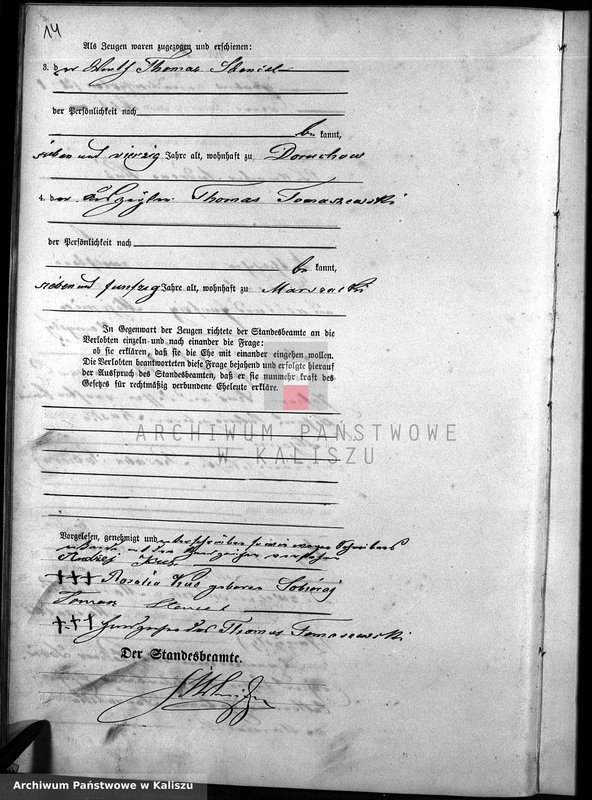 14
Als Zeugen waren zugezogen und erschienen:
3. der Wirth Thomas Stencel
der Persönlichkeit nach
be kannt,
sieben und vierzig Jahre alt, wohnhaft zu Doruchow
4. der Thomas Tomaszewski
der Persönlichkeit nach
be kannt,
sieben und funfzig Jahre alt, wohnhaft zu Marszalki
In Gegenwart der Zeugen richtete der Standesbeamte an die
Verlobten einzeln und nach einander die Frage:
ob sie erklären, daß sie die Ehe mit einander eingehen wollen.
Die Verlobten beantworteten diese Frage bejahend und erfolgte hierauf
der Ausspruch des Standesbeamten, daß er sie nunmehr kraft des
Gesetzes für rechtmäßig verbundene Eheleute erkläre.
ARCHIWUM PAŃSTWOWE
W KALISZU
Vorgelesen, genehmigt und unterschrieben sowie wegen Schreibens
mit den Handzeichen versehen
Andrzej Kus
+++ Rosalia Kus geboren Sobieraj
Tomas Stencel
+++ Handzeichen des Thomas Tomaszewski
Der Standesbeamte.
Archiwum Państwowe w Kaliszu